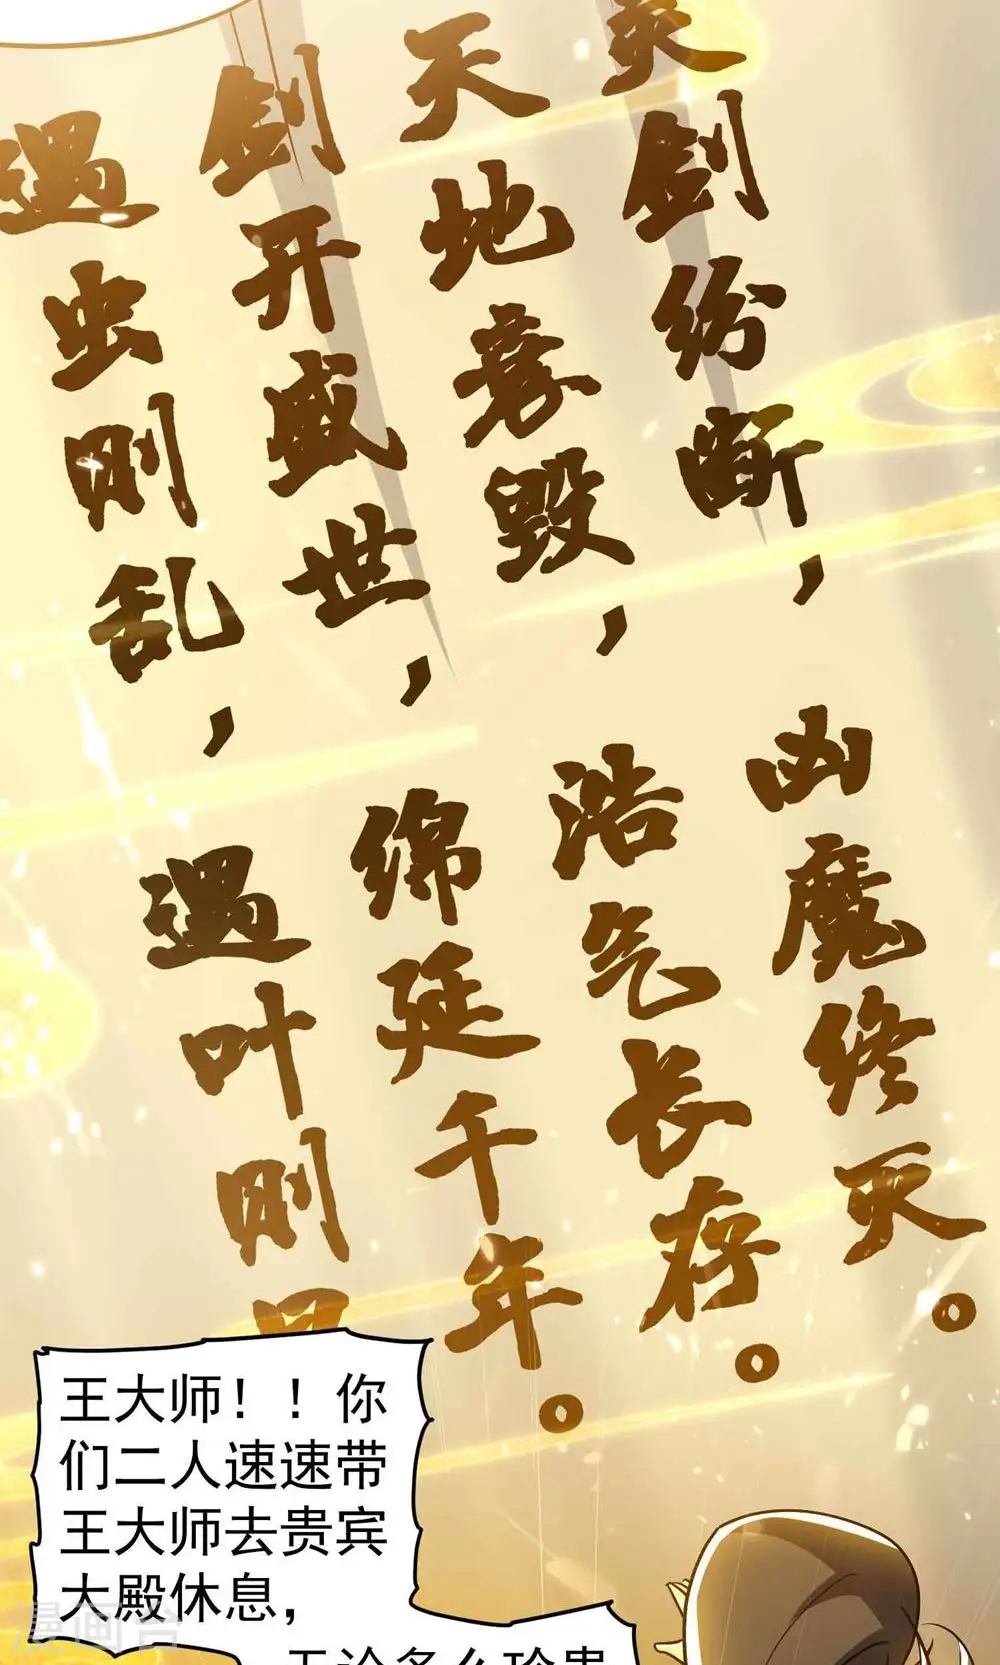 灵剑纷断，凶魔终灭。
天地衰毁，浩气长存。
剑开盛世，绵延千年。
遇虫则乱，遇叶则
王大师！！你
们二人速速带
王大师去贵宾
大殿休息，
无论多么珍贵
漫画台